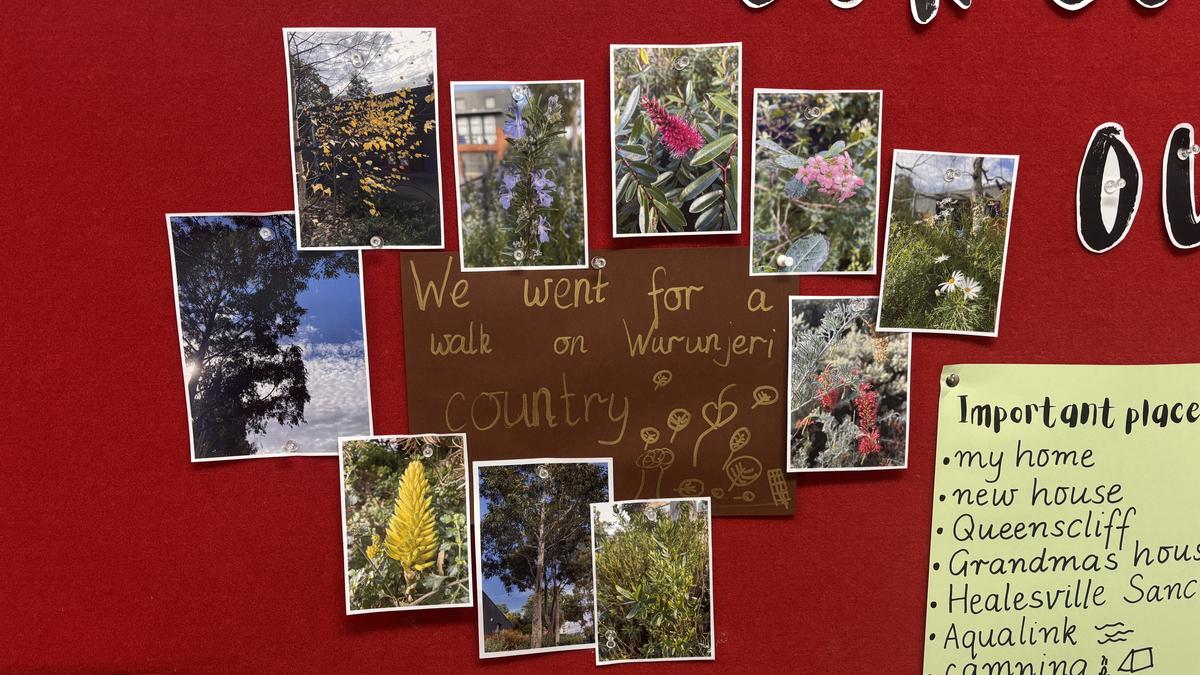 We went for a
walk on Wurunjeri
country
Important place
• my home
• new house
• Queenscliff
• Grandmas hous
• Healesville Sanc
• Aqualink
camping